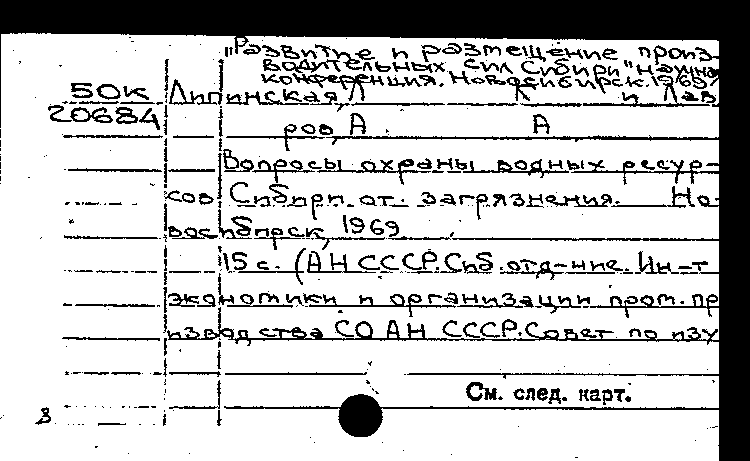 "Развитие и размещение произ-
водительных сил Сибири" научная
конференция. Новосибирск. 1969/
50к Липинская, Л Л и Лав
20684
ров, А А
Вопросы охраны водных ресур-
сов Сибири от загрязнения. Но-
восибирск, 1969.
15 с. (АН СССР. Сиб. отд-ние. Ин-т
экономики и организации пром. пр
изводства СО АН СССР. Совет по изу
См. след. карт.
8